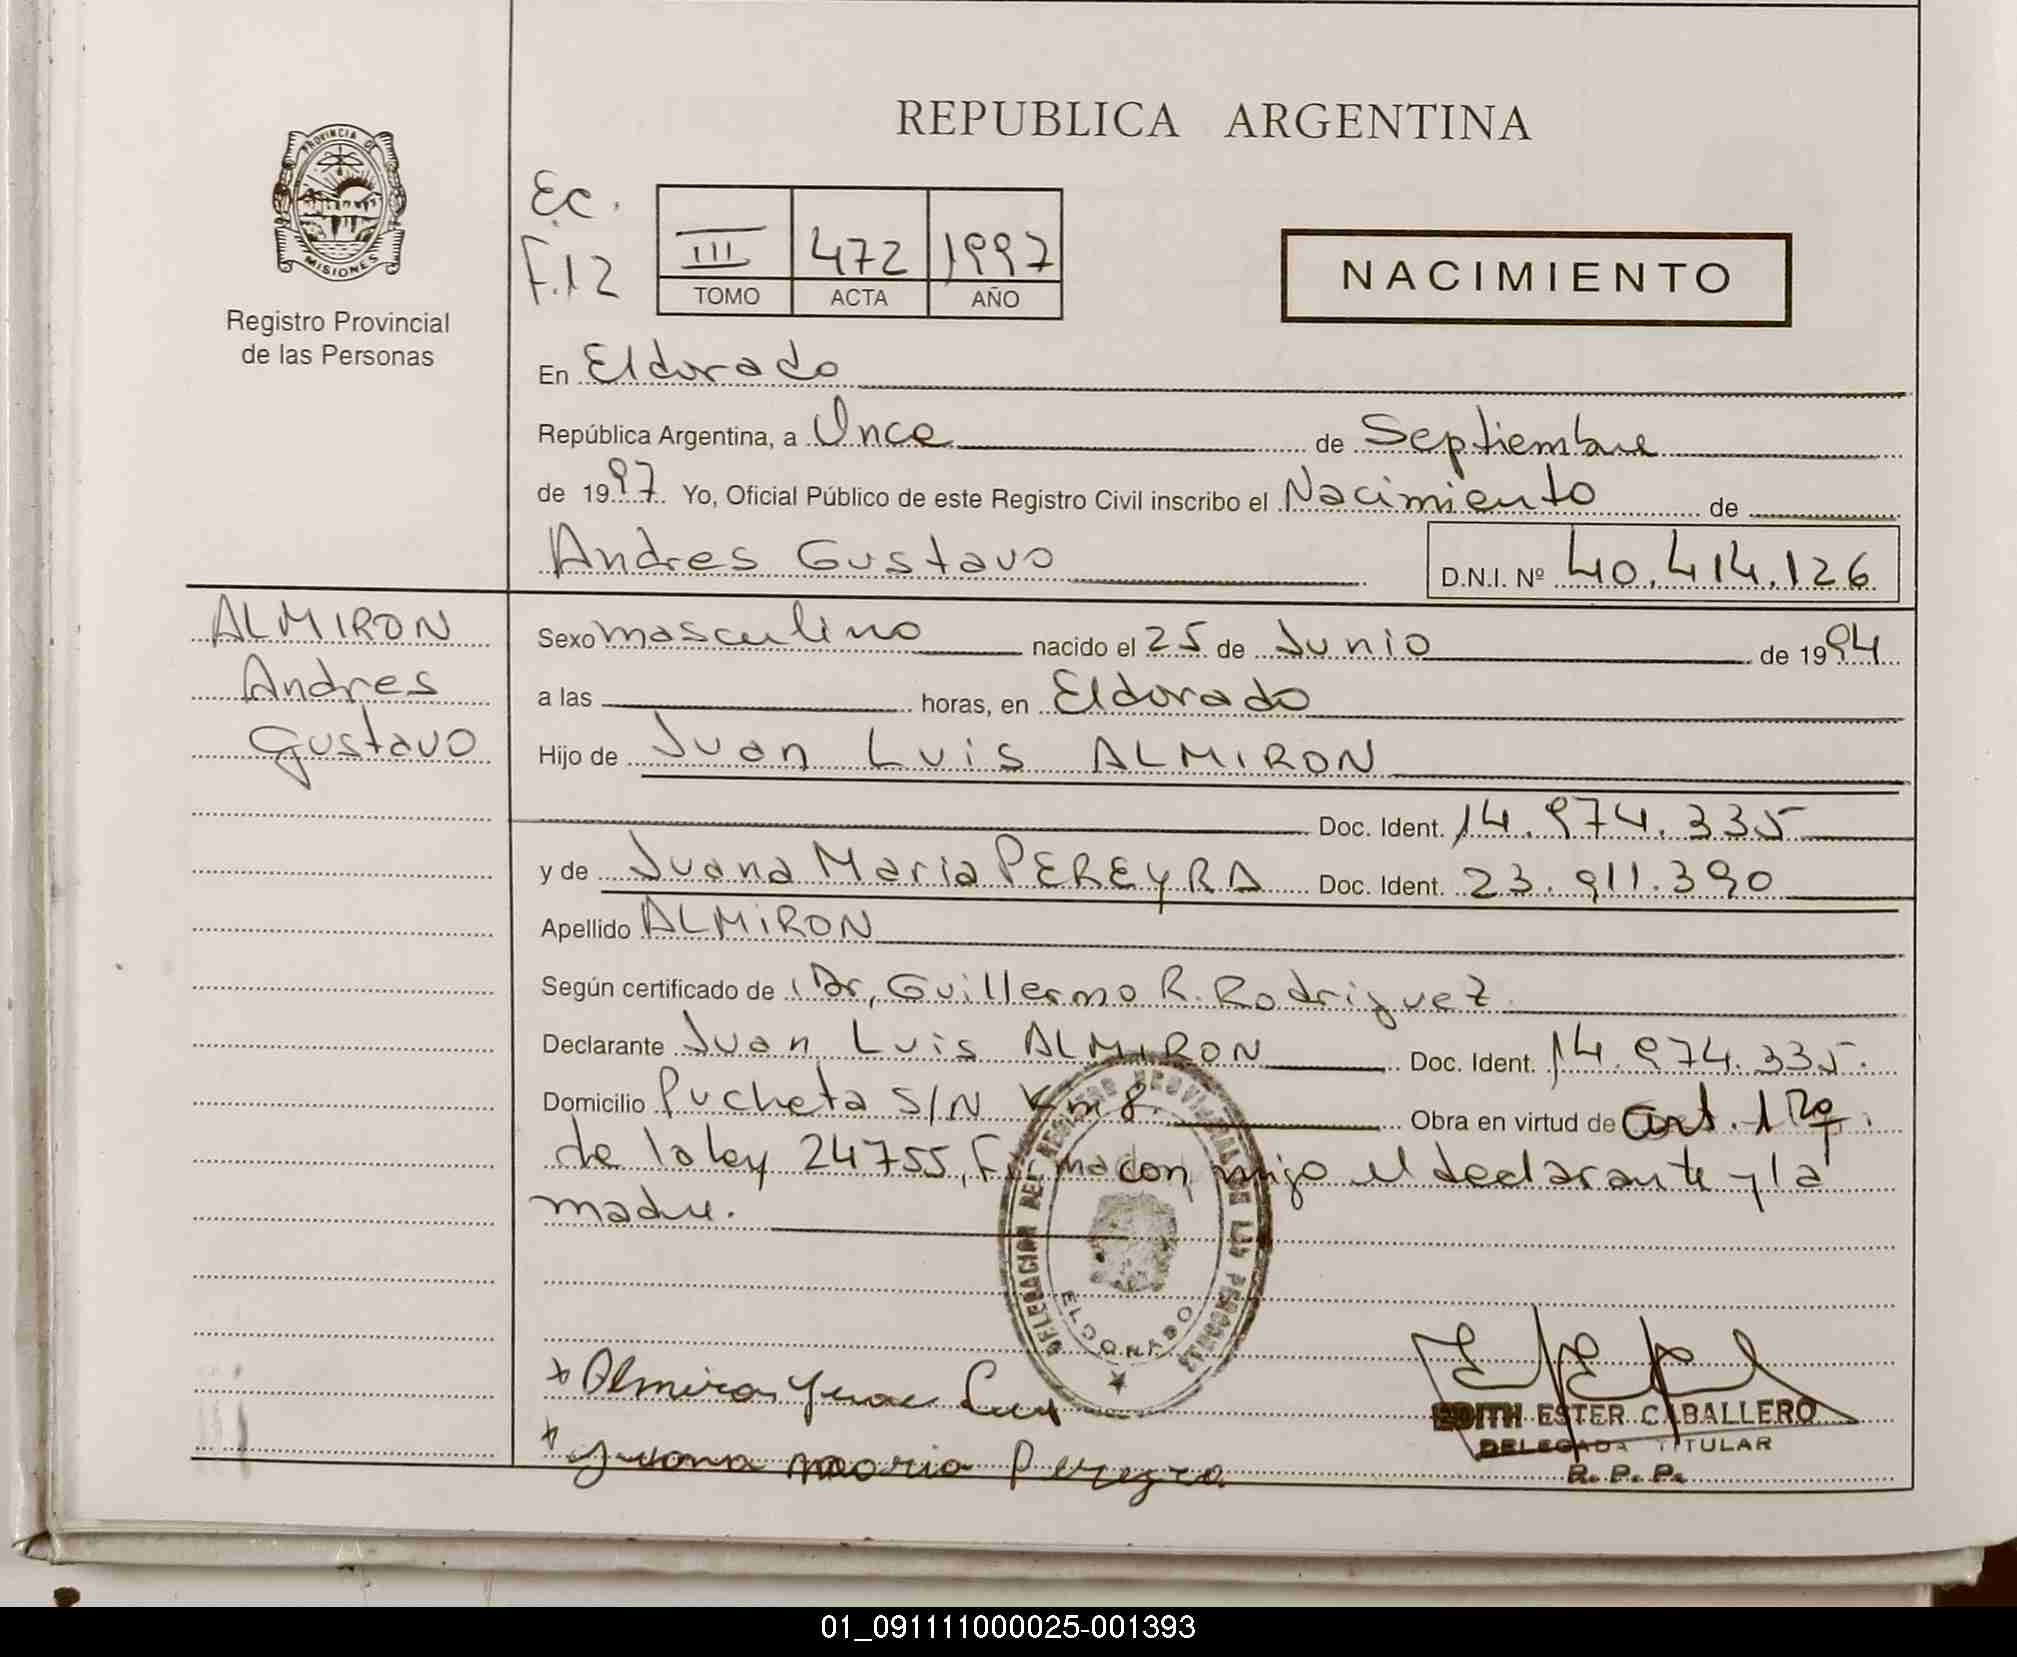 REPUBLICA ARGENTINA
PROVINCIA DE
MISIONES
Registro Provincial
de las Personas
Ec.
F.12
III 472 1997
TOMO ACTA AÑO
NACIMIENTO
En Eldorado
República Argentina, a Once de Septiembre
de 1997 Yo, Oficial Público de este Registro Civil inscribo el Nacimiento de
Andres Gustavo D.N.I. Nº 40.414.126
ALMIRON
Andres
Gustavo
Sexo masculino nacido el 25 de Junio de 1994
a las horas, en Eldorado
Hijo de Juan Luis ALMIRON
Doc. Ident. 14.974.335
y de Juana Maria PEREYRA Doc. Ident. 23.911.390
Apellido ALMIRON
Según certificado de Dr, Guillermo R. Rodriguez
Declarante Juan Luis ALMIRON Doc. Ident. 14.974.335.
Domicilio Pucheta S/N Km 8. Obra en virtud de art. 1º
de la ley 24755, Firma con migo el declarante y la
madre.
DELEGACION DEL REGISTRO PROVINCIAL DE LAS PERSONAS
ELDORADO
x Almiron Juan Luis
x Juana maria Pereyra
EDITH ESTER CABALLERO
DELEGADA TITULAR
R. P. P.
01_091111000025-001393